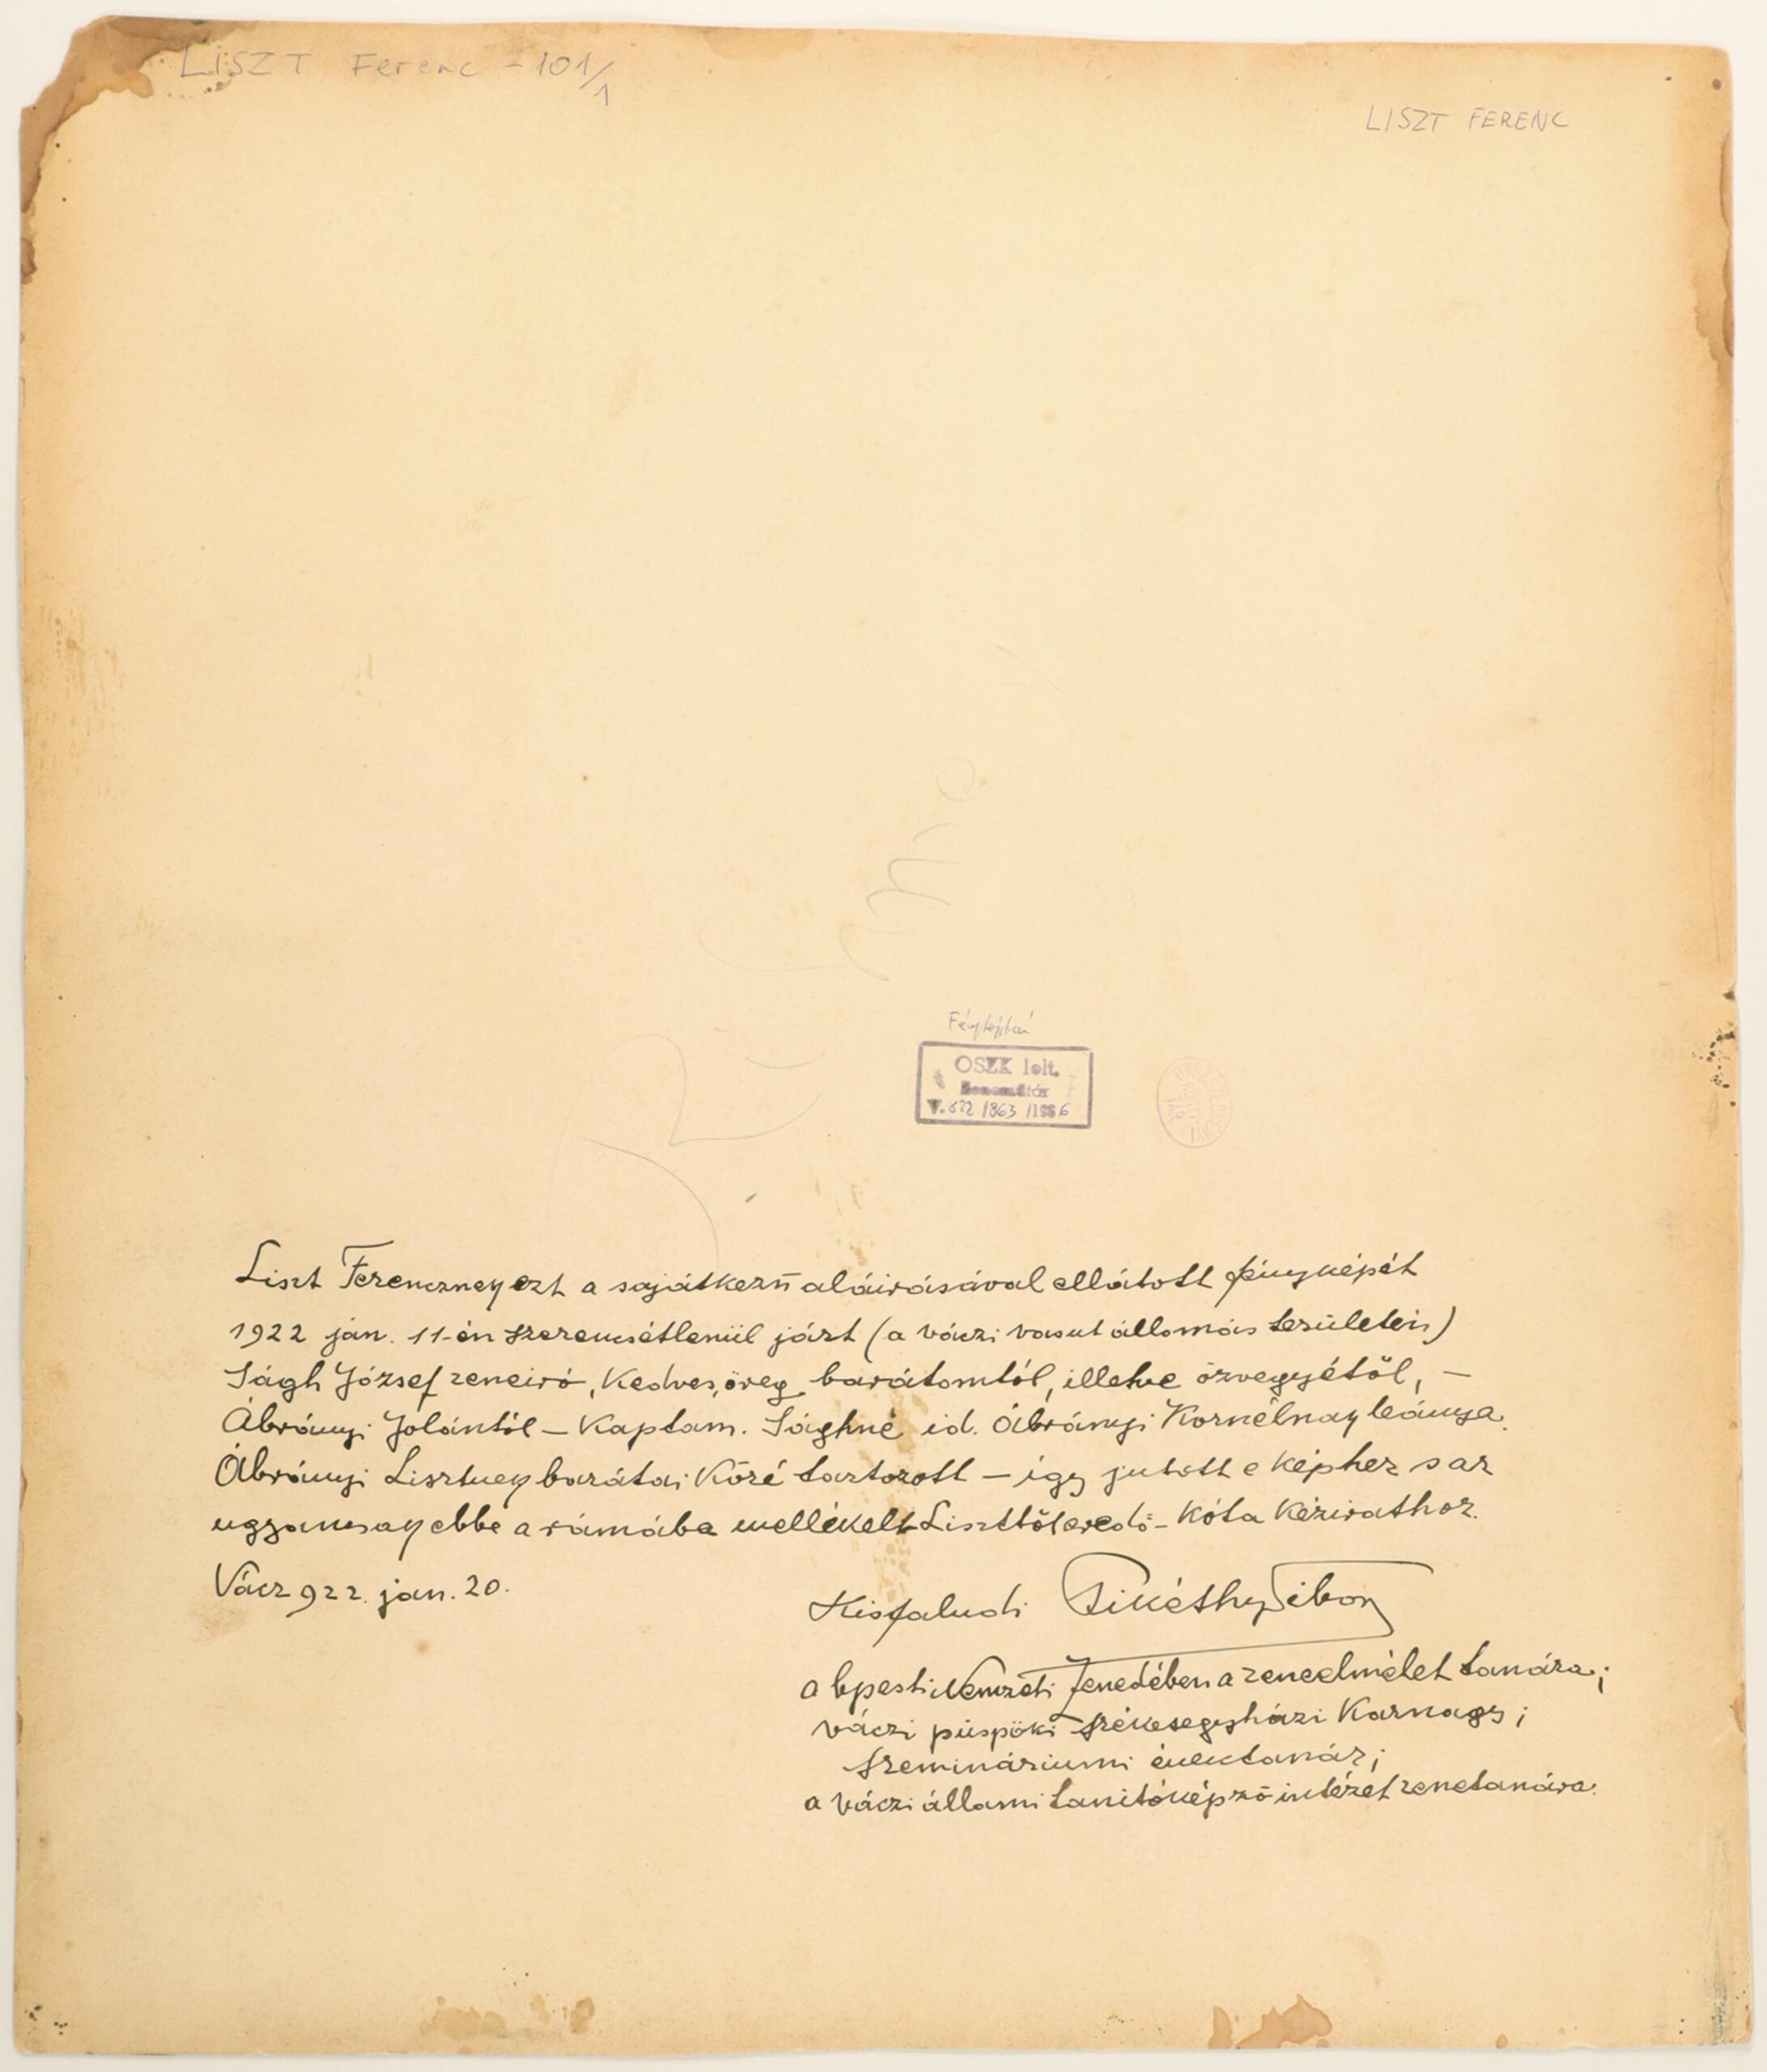 LISZT Ferenc - 101/1
LISZT FERENC
OSZK lelt.
Liszt Ferencznek ezt a sajátkezű aláirásával ellátott fényképét
1922 jan. 11-én szerencsétlenül járt (a váczi vasutállomás területén)
Ságh József zeneiró, kedves, öreg barátomtól, illetve özvegyétől, –
Ábrányi Jolántól – kaptam. Sághné id. Ábrányi Kornélnak leánya.
Ábrányi Lisztnek barátai közé tartozott – igy jutott e képhez s az
ugyancsak ebbe a rámába mellékelt Liszttől eredő - kóta kézirathoz.
Vácz 922. jan. 20.
Kisfaludi Pikéthy Tibor
a bpesti Nemzeti Zenedében a zeneelmélet tanára;
váczi püspöki székesegyházi karnagy;
szemináriumi énektanár;
a váczi állami tanitóképző intézet zenetanára.